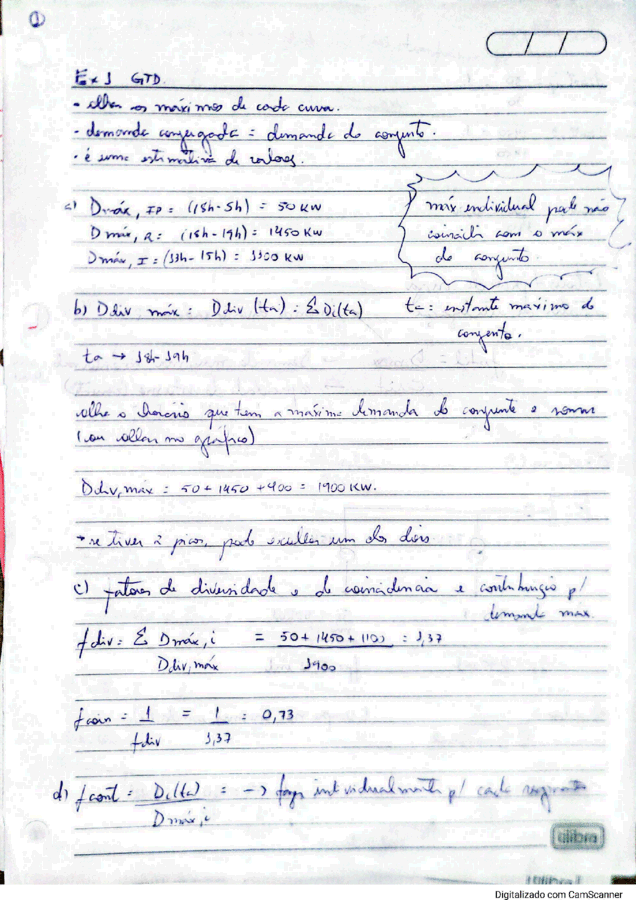 1
Ex 1 GTD.
• olhar os máximos de cada curva.
• demanda conjugada = demanda do conjunto.
• é uma estimativa de valores.
a) Dmáx, IP = (18h-5h) = 50 KW
máx individual pode não
Dmáx, R = (18h-19h) = 1450 KW
coincidir com o máx
Dmáx, I = (13h-15h) = 1100 KW
do conjunto.
b) Ddiv máx = Ddiv (ta) = ΣDi(ta)
ta = instante máximo do
conjunto.
ta → 18h-19h
olhe o horário que tem a máxima demanda do conjunto e somar
(ou olhar no gráfico)
Ddiv, max = 50 + 1450 + 400 = 1900 KW.
• se tiver 2 picos, pode escolher um dos dois
c) fatores de diversidade e de coincidencia e contribuição p/
demanda max.
fdiv = Σ Dmáx,i = 50 + 1450 + 1100 = 1,37
Ddiv,máx 1900
fcoin = 1 = 1 = 0,73
fdiv 1,37
d) fcont = Di(ta) = → faço individualmente p/ cada
Dmáx,i
tilibra
Digitalizado com CamScanner